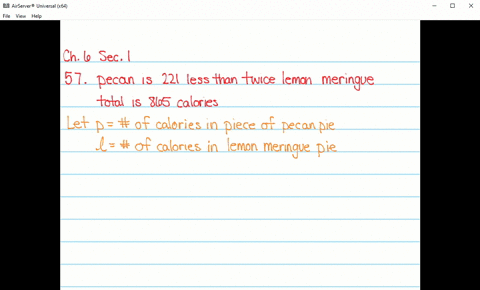 AirServer® Universal (x64)
File View Help
Ch. 6 Sec. 1
57. pecan is 221 less than twice lemon meringue
total is 865 calories
Let p = # of calories in piece of pecan pie
l = # of calories in lemon meringue pie